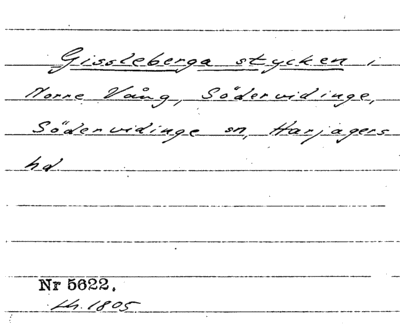 Gissleberga stycken i
Norre Vång, Södervidinge,
Södervidinge sn, Harjagers
hd
Nr 5622.
Lh. 1805